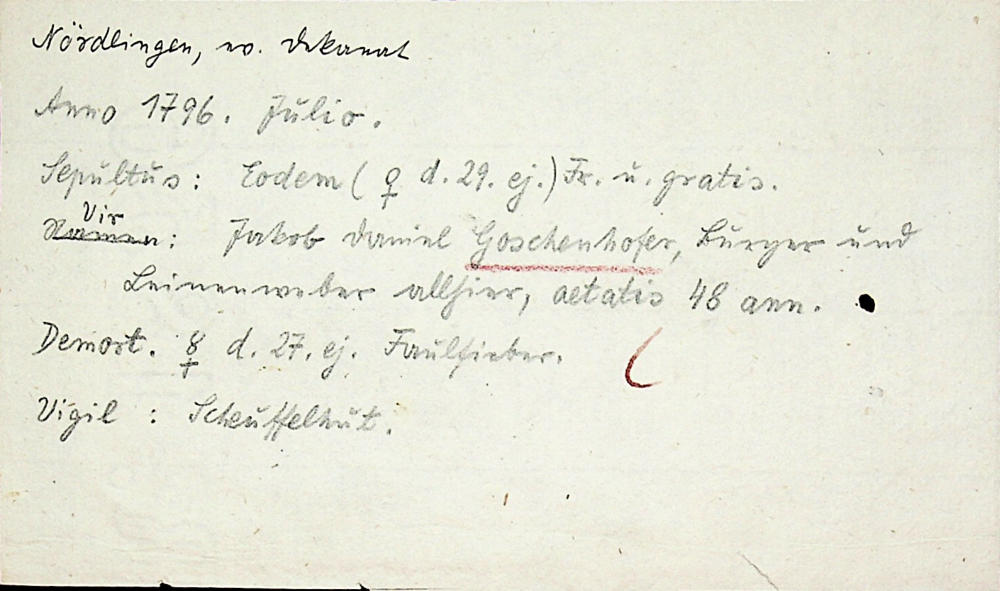 Nördlingen, ev. Dekanat
Anno 1796. Julio.
Sepultus: Eodem (♀ d. 29. ej.) Fr. u. gratis.
Vir
Namen: Jakob Daniel Goschenhofer, Bürger und
Leinenweber allhier, aetatis 48 ann.
Demort. ☿ d. 27. ej. Faulfieber.
Vigil : Scheuffelhut.